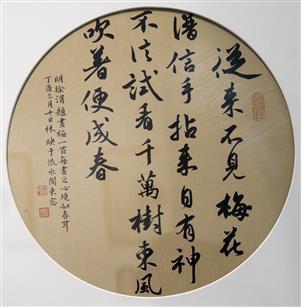 從來不見梅花
譜信手拈來自有神
不信試看千萬樹東風
吹著便成春
明徐渭題畫梅一首每書之心境如春耳
丁酉三月十日林